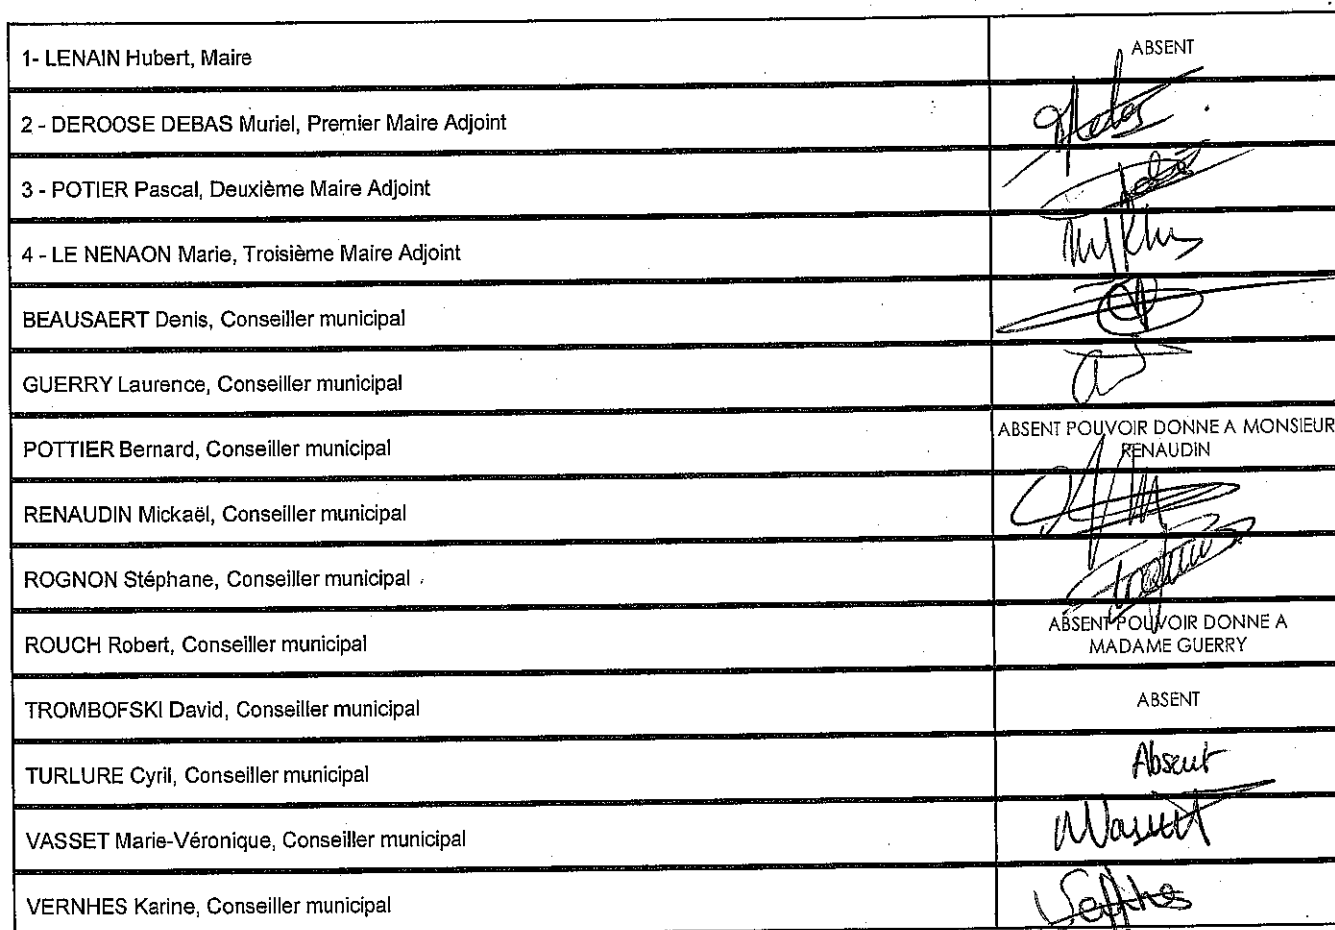 1- LENAIN Hubert, Maire
ABSENT
2 - DEROOSE DEBAS Muriel, Premier Maire Adjoint
3 - POTIER Pascal, Deuxième Maire Adjoint
4 - LE NENAON Marie, Troisième Maire Adjoint
BEAUSAERT Denis, Conseiller municipal
GUERRY Laurence, Conseiller municipal
POTTIER Bernard, Conseiller municipal
ABSENT POUVOIR DONNE A MONSIEUR
RENAUDIN
RENAUDIN Mickaël, Conseiller municipal
ROGNON Stéphane, Conseiller municipal
ROUCH Robert, Conseiller municipal
ABSENT POUVOIR DONNE A
MADAME GUERRY
TROMBOFSKI David, Conseiller municipal
ABSENT
TURLURE Cyril, Conseiller municipal
Absent
VASSET Marie-Véronique, Conseiller municipal
VERNHES Karine, Conseiller municipal